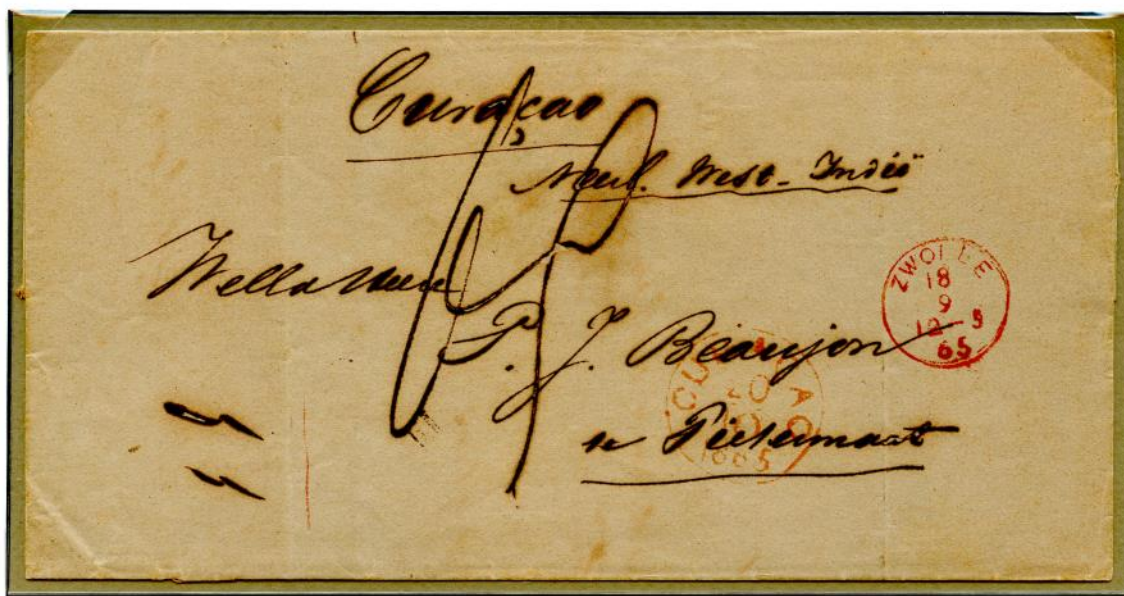 Curaçao
Neerl. West-Indië
P. J. Beaujon
te Pietermaai
ZWOLLE
18
9
12-5
65
CURAÇAO
1865